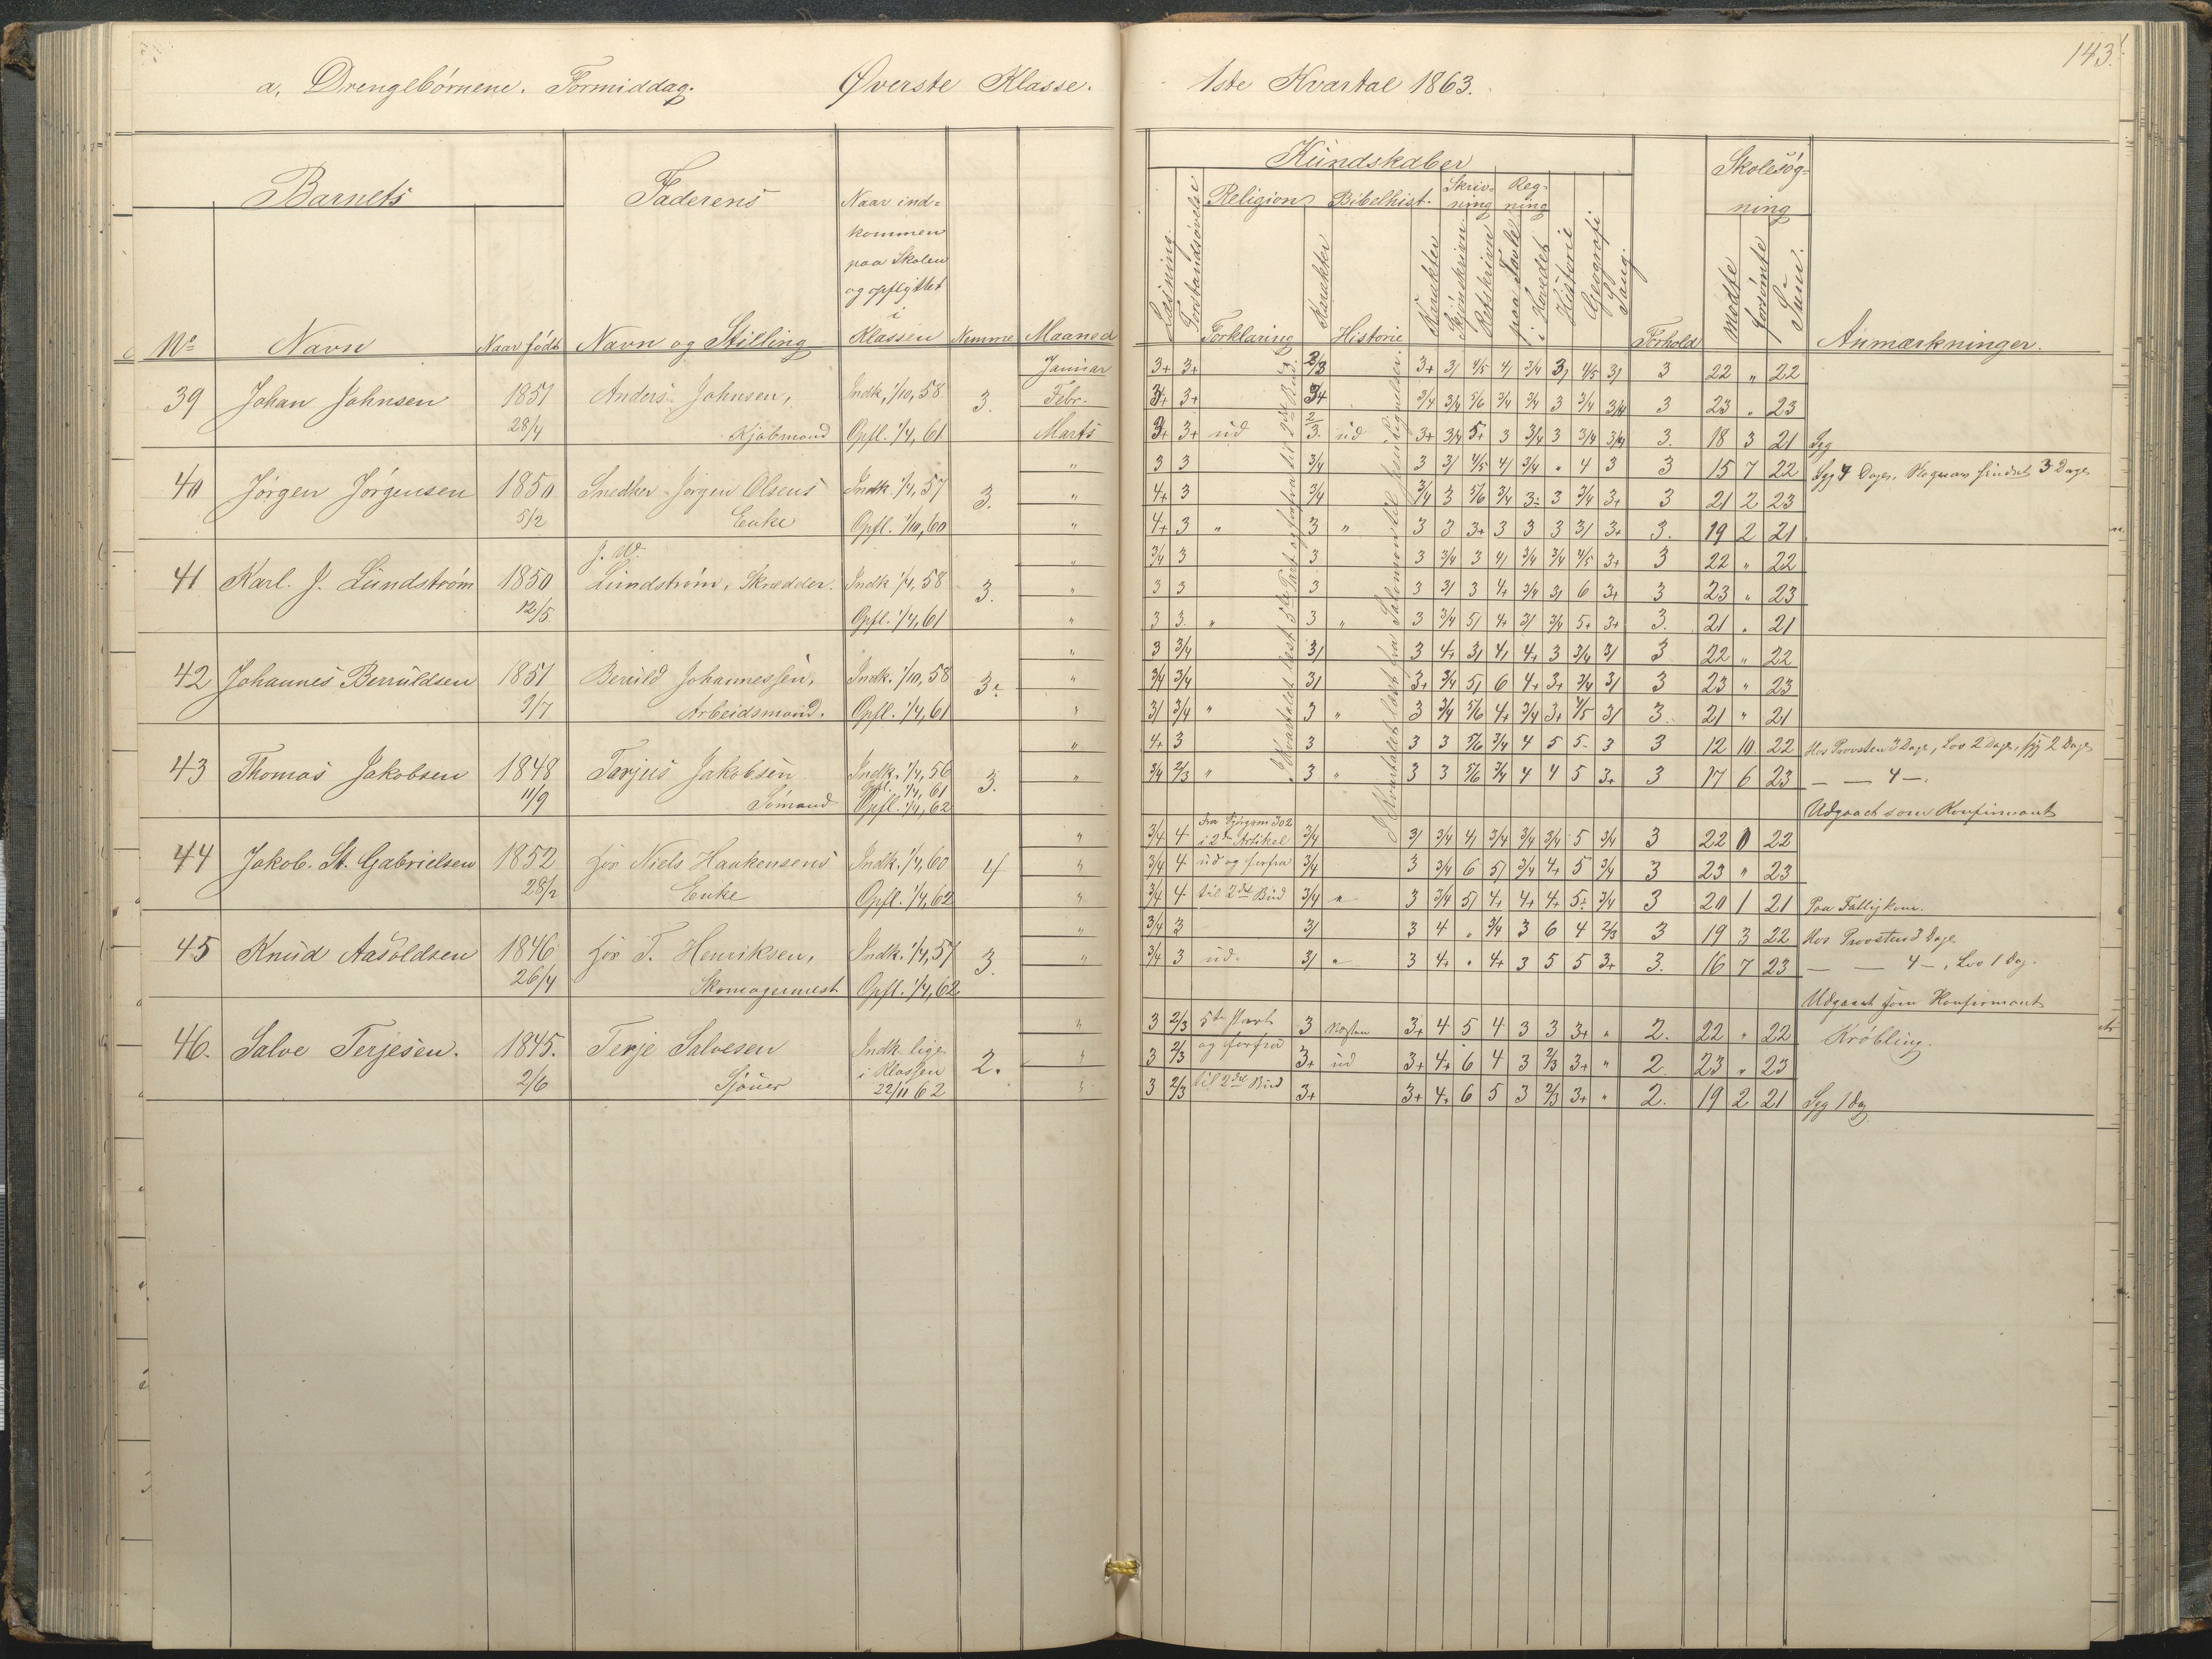 a, Drengebørnene. Formiddag. Øverste Klasse. 1ste Kvartal 1863. 143.
Barnets Faderens Naar ind=
kommen
paa Skolen
og opflyttet
i
Klassen
No Navn Naar født Navn og Stilling Nemme Maaned
Kundskaber
Læsning. Forstandsøvelse Religion Bibelhist. Skriv=
ning Reg=
ning Historie Geografi Sang.
Forklaring Karakter Historie Karakter Skjönskrivn Retskrivn paa Tavle i Hovedet
Forhold Skolesøg=
ning
Mødte forsømte Sum. Anmærkninger.
I Kvartalet læst fra Salomon til Jesu Lignelser.
Januar 3+ 3+ 2/3 3+ 3/ 4/5 4/ 3/4 3/ 4/5 3/ 3 22 „ 22
39 Johan Johnsen 1851 Anders Johnsen, Indk, 1/10, 58 3. Febr. 3+ 3+ 3/4 3/4 3/4 5/6 3/4 3/4 3 3/4 3/4 3 23 „ 23
28/4 Kjøbmand Opfl. 1/4, 61 Marts 3+ 3+ ud 2/3. ud 3+ 3/4 5+ 3 3/4 3 3/4 3/4 3. 18 3 21 Syg
„ 3 3 3/4 3 3/ 4/5 4/ 3/4 „ 4 3 3 15 7 22 Syg 4 Dage, 3 Dage
40 Jørgen Jørgensen 1850 Snedker Jørgen Olsens Indk. 1/4, 57 3. „ 4+ 3 3/4 3/4 3 5/6 3/4 3- 3 3/4 3+ 3 21 2 23
5/2 Enke Opfl. 1/10, 60 „ 4+ 3 „ 3 „ 3 3 3+ 3 3 3 3/ 3+ 3. 19 2 21
J. W.
„ 3/4 3 3 3 3/4 3 4/ 3/4 3/4 4/5 3+ 3 22 „ 22
41 Karl. J. Lundstrøm 1850 Lundstrøm, Skrædder. Indk 1/4, 58 3. „ 3 3 3 3 3/ 3 4+ 3/4 3/ 6 3+ 3 23 „ 23
12/5. Opfl. 1/4, 61 „ 3 3. „ 3 „ 3 3/4 5/ 4+ 3/ 3/4 5+ 3+ 3. 21 „ 21
„ 3 3/4 3/ 3 4+ 3/ 4+ 4+ 3 3/4 3/ 3 22 „ 22
42 Johannes Berruldsen 1851 Beruld Johannessen, Indk. 1/10, 58 3- „ 3/4 3/4 3/ 3+ 3/4 5/ 6 4+ 3+ 3/4 3/ 3 23 „ 23
9/7 Arbeidsmand. Opfl. 1/4, 61 „ 3/ 3/4 „ 3 „ 3 3/4 5/6 4+ 3/4 3+ 4/5 3/ 3. 21 „ 21
„ 4+ 3 3 3 3 5/6 3/4 4 5 5- 3 3 12 10 22 Hos Provsten 3 Dage, Lov 2 Dage, syg 2 Dage
43 Thomas Jakobsen 1848 Tarjus Jakobsen Indk. 1/4, 56 3. „ 3/4 2/3 „ 3 „ 3 3 5/6 3/4 4 4 5 3+ 3 17 6 23 — — 4 —.
11/9 Sømand Opfl. 1/4, 61
Opfl. 1/4, 62 Udgaaet som Konfirmant
„ 3/4 4 Fra Spørgsm 302
i 2den Artikel 3/4 3/ 3/4 4/ 3/4 3/4 3/4 5 3/4 3 22 0 22
44 Jakob. St. Gabrielsen 1852 for Niels Haakensens Indk. 1/4, 60 4 „ 3/4 4 ud og forfra 3/4 3 3/4 6 5/ 3/4 4+ 5 3/4 3 23 „ 23
28/2 Enke Opfl. 1/4, 62 „ 3/4 4 til 2det Bud 3/4 „ 3 3/4 5/ 4+ 4+ 4+ 5- 3/4 3 20 1 21
„ 3/4 3 3/ 3 4 „ 3/4 3 6 4 2/3 3 19 3 22 Hos Provsten 3 Dage
45 Knud Aasoldsen 1846 for T. Henriksen, Indk. 1/4, 57 3. „ 3/4 3 ud. 3/ „ 3 4+ „ 4+ 3 5 5 3+ 3. 16 7 23 — — 4 —, Lov 1 Dag.
26/4 Skomagermest Opfl. 1/4, 62 Udgaaet som Konfirmant
„ 3 2/3 5te Part 3 Næsten 3+ 4 5 4 3 3 3+ „ 2. 22 „ 22 Krøbling.
46. Salve Terjesen. 1845. Terje Salvesen Indk. lige
i Klassen 2. „ 3 2/3 og forfra 3+ ud 3+ 4+ 6 4 3 2/3 3+ „ 2. 23 „ 23
2/6 Sjöuer 22/11 62 „ 3 2/3 til 2det Bud 3+ 3+ 4+ 6 5 3 2/3 3+ „ 2. 19 2 21 Syg 1 dag